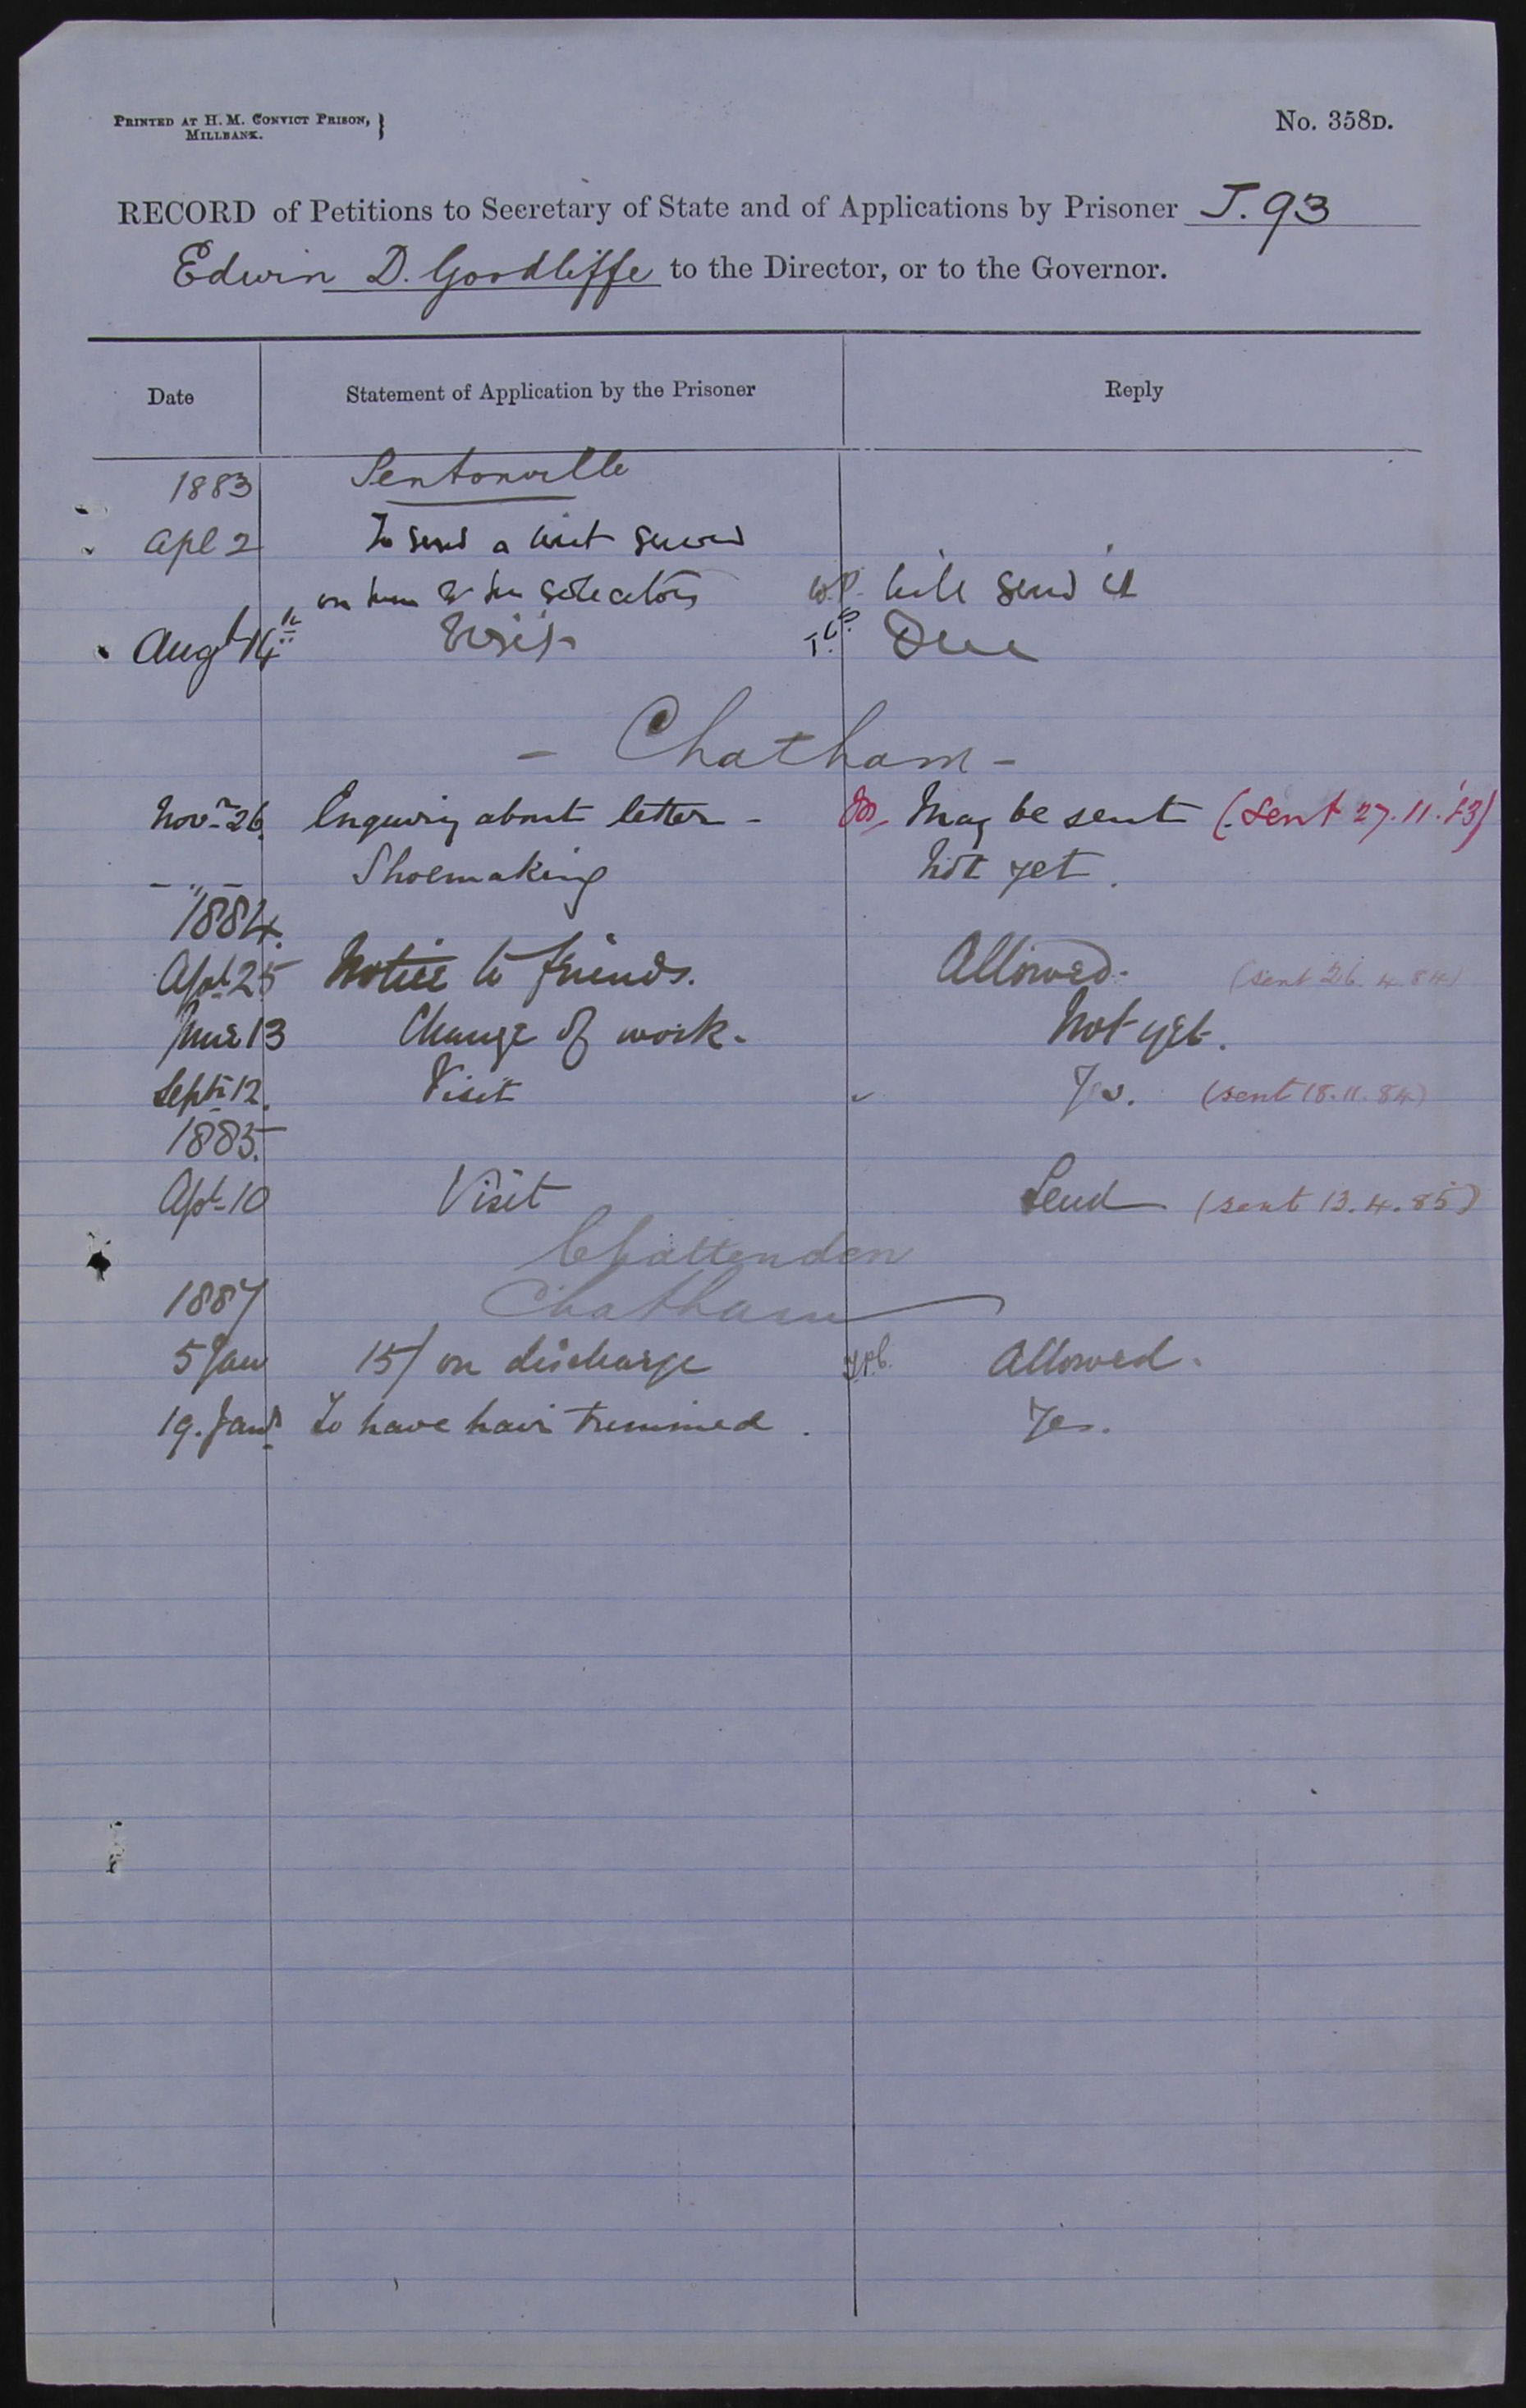 PRINTED AT H. M. CONVICT PRISON, }
MILLBANK.
No. 358D.
RECORD of Petitions to Secretary of State and of Applications by Prisoner J. 93
Edwin D. Goodliffe to the Director, or to the Governor.
Date Statement of Application by the Prisoner Reply
1883 Pentonville
Apl 2 To send a writ served
on him to his solicitors W.P. will send it
Augt 14th Visit Due
- Chatham -
Novr 26 Enquiry about letter - May be sent (Sent 27.11.83)
- " - Shoemaking Not yet.
1884.
Apl 25 Notice to friends. Allowed. (sent 26.4.84)
June 13 Change of work. Not yet.
Septr 12. Visit Yes. (sent 18.11.84)
1885.
Apl 10 Visit Send (sent 13.4.85)
Chattenden
1887 Chatham
5 Jan 15/ on discharge Allowed.
19. Jany To have hair trimmed. Yes.